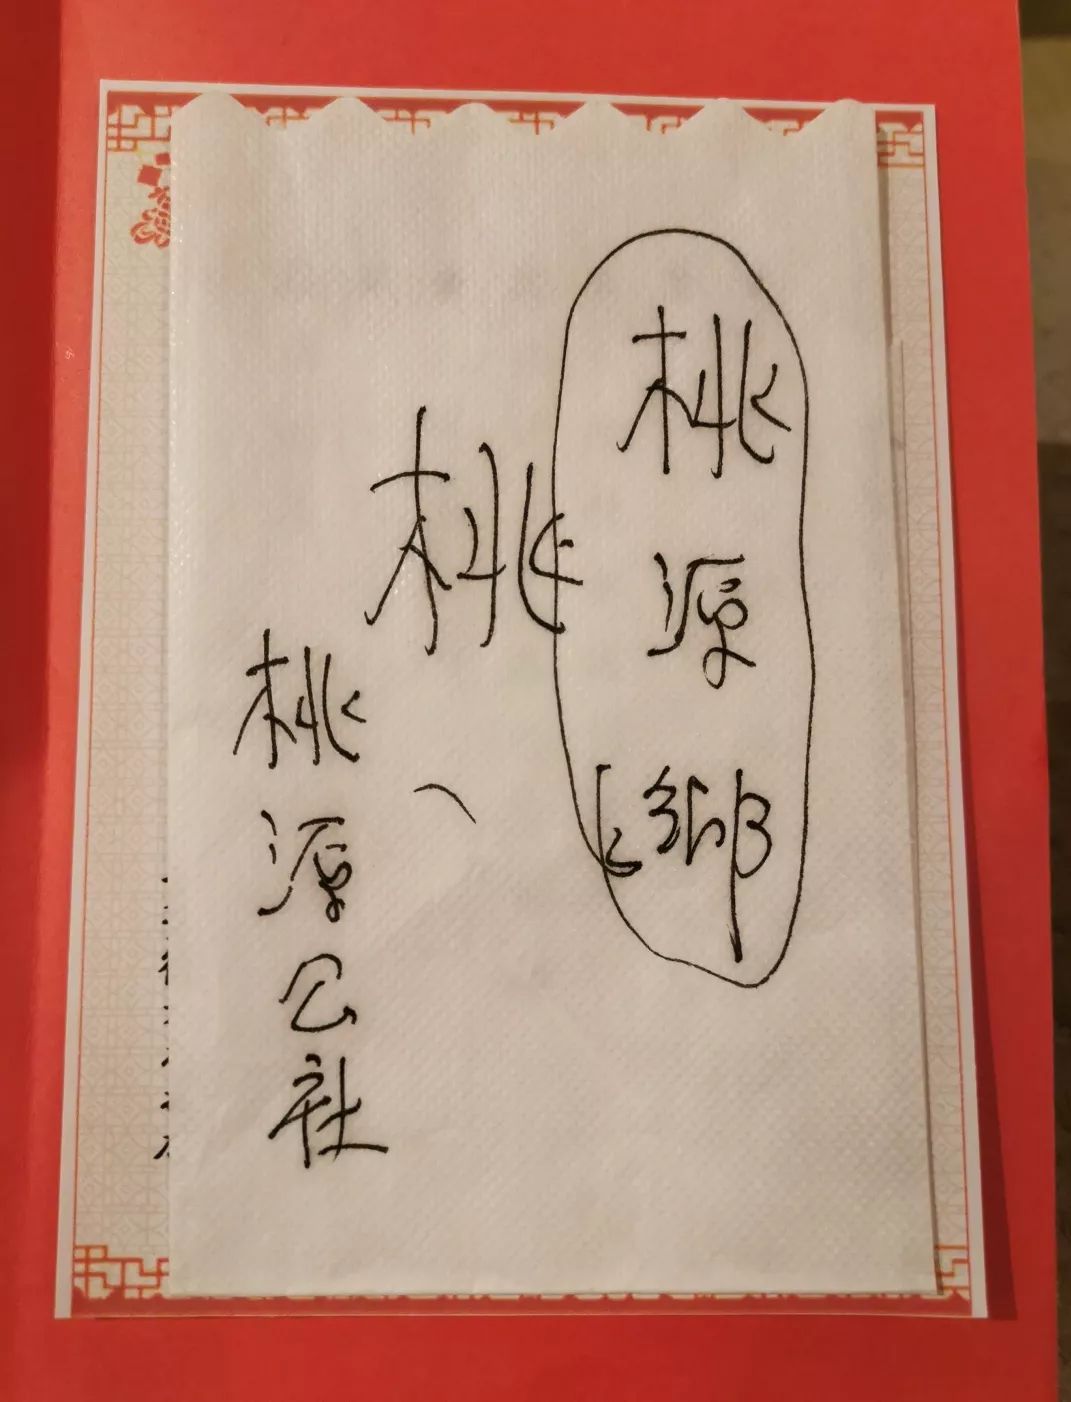 桃源鄉
桃
桃源公社